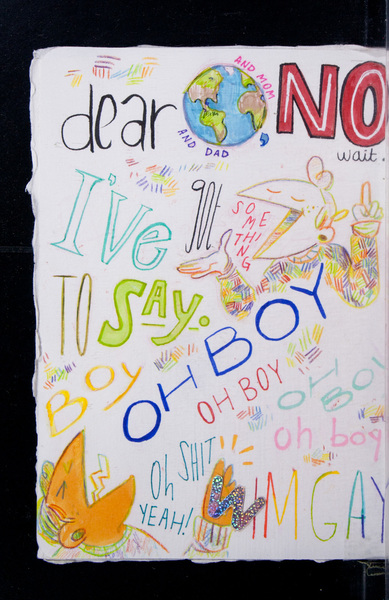 dear AND MOM AND DAD, NO
wait.
I've got SOMETHING
TO SAY.
BOY OH BOY
OH BOY OH BOY
oh boy
Oh SHIT
YEAH!
I'M GAY